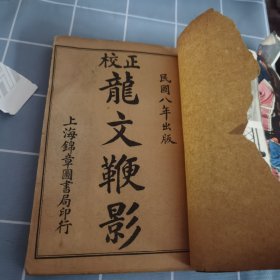 民國八年出版
校正
龍文鞭影
上海錦章圖書局印行